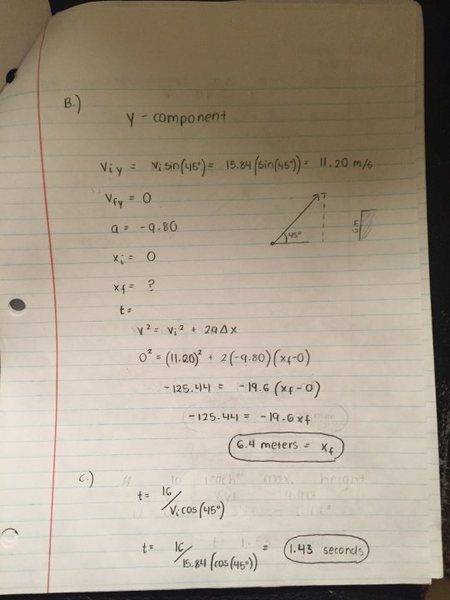 B.)
y - component
Viy = Vi sin(45°) = 15.84(sin(45°)) = 11.20 m/s
Vfy = 0
a = -9.80
xi = 0
xf = ?
t =
45°
V² = Vi² + 2aΔx
0² = (11.20)² + 2(-9.80)(xf-0)
-125.44 = -19.6 (xf-0)
-125.44 = -19.6xf
6.4 meters = xf
C.)
t = 16/Vi cos(45°)
t = 16/15.84(cos(45°)) = 1.43 seconds